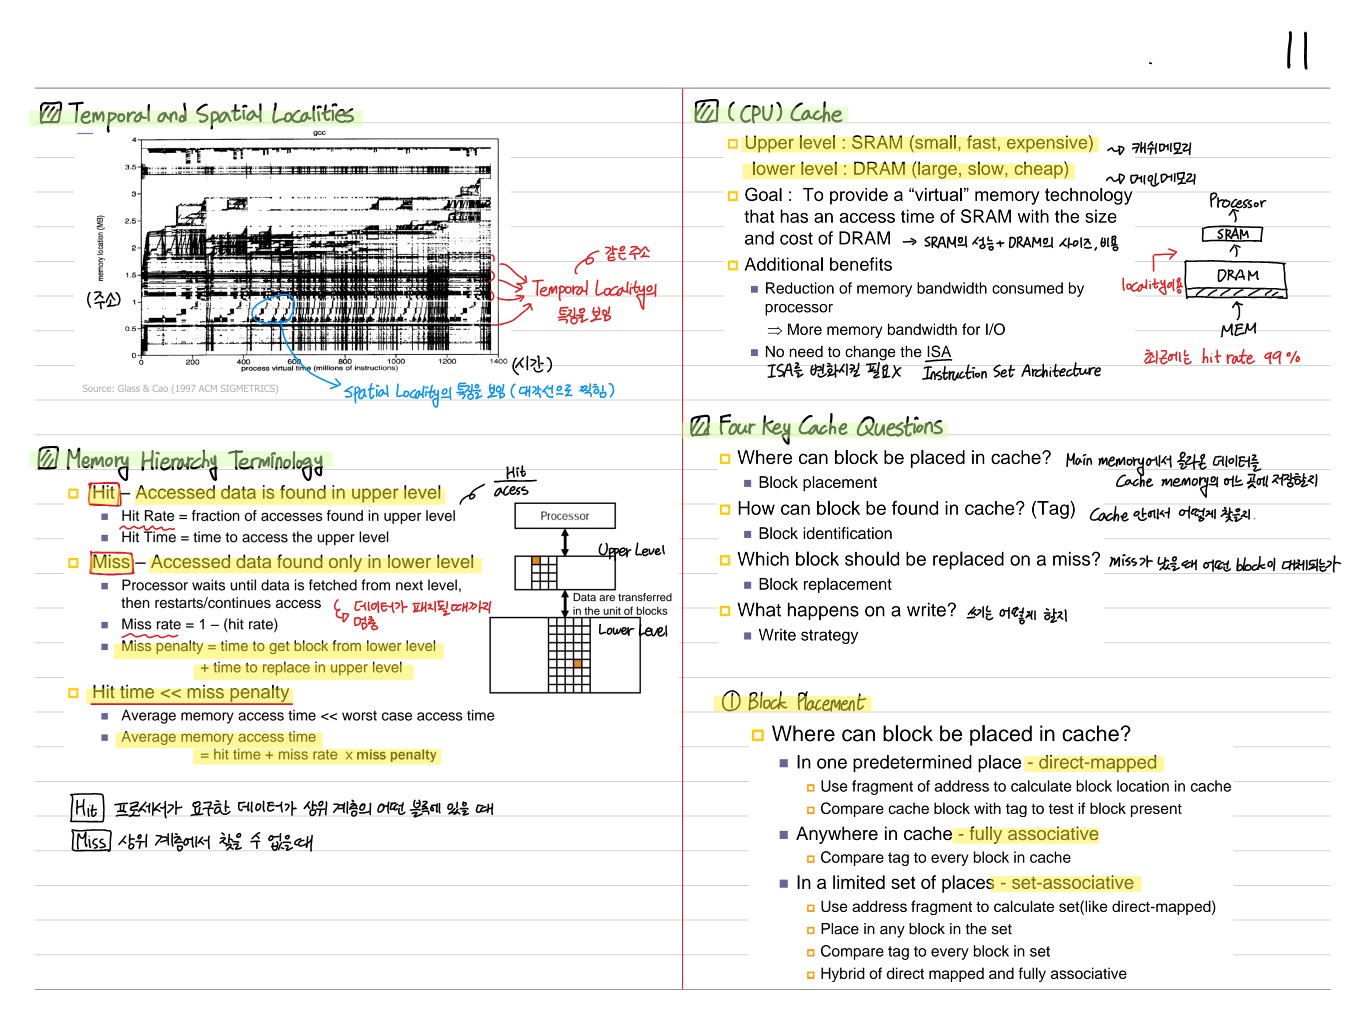 11
Temporal and Spatial Localities
gcc
4
3.5
3
2.5
2
1.5
1
0.5
0
memory location (MB)
(주소)
0 200 400 600 800 1000 1200 1400
process virtual time (millions of instructions)
(시간)
같은주소
Temporal Locality의
특징을 보임
Spatial Locality의 특징을 보임 (대각선으로 찍힘)
Source: Glass & Cao (1997 ACM SIGMETRICS)
Memory Hierarchy Terminology
Hit – Accessed data is found in upper level
Hit
acess
Hit Rate = fraction of accesses found in upper level
Hit Time = time to access the upper level
Miss – Accessed data found only in lower level
Processor waits until data is fetched from next level,
then restarts/continues access
데이터가 패치될때까지
멈춤
Miss rate = 1 – (hit rate)
Miss penalty = time to get block from lower level
+ time to replace in upper level
Hit time << miss penalty
Average memory access time << worst case access time
Average memory access time
= hit time + miss rate x miss penalty
Processor
Upper Level
Data are transferred
in the unit of blocks
Lower Level
Hit 프로세서가 요구한 데이터가 상위 계층의 어떤 블록에 있을 때
Miss 상위 계층에서 찾을 수 없을때
(CPU) Cache
Upper level : SRAM (small, fast, expensive) ~> 캐쉬메모리
lower level : DRAM (large, slow, cheap) ~> 메인메모리
Goal : To provide a “virtual” memory technology
that has an access time of SRAM with the size
and cost of DRAM → SRAM의 성능 + DRAM의 사이즈, 비용
Additional benefits
Reduction of memory bandwidth consumed by
processor
⇒ More memory bandwidth for I/O
No need to change the ISA
ISA를 변화시킬 필요X Instruction Set Architecture
Processor
SRAM
DRAM
locality이용
MEM
최근에는 hit rate 99%
Four Key Cache Questions
Where can block be placed in cache? Main memory에서 올라온 데이터를
Cache memory의 어느 곳에 저장할지
Block placement
How can block be found in cache? (Tag) Cache 안에서 어떻게 찾을지.
Block identification
Which block should be replaced on a miss? Miss가 났을때 어떤 block이 대체되는가
Block replacement
What happens on a write? 쓰기는 어떻게 할지
Write strategy
① Block Placement
Where can block be placed in cache?
In one predetermined place - direct-mapped
Use fragment of address to calculate block location in cache
Compare cache block with tag to test if block present
Anywhere in cache - fully associative
Compare tag to every block in cache
In a limited set of places - set-associative
Use address fragment to calculate set(like direct-mapped)
Place in any block in the set
Compare tag to every block in set
Hybrid of direct mapped and fully associative